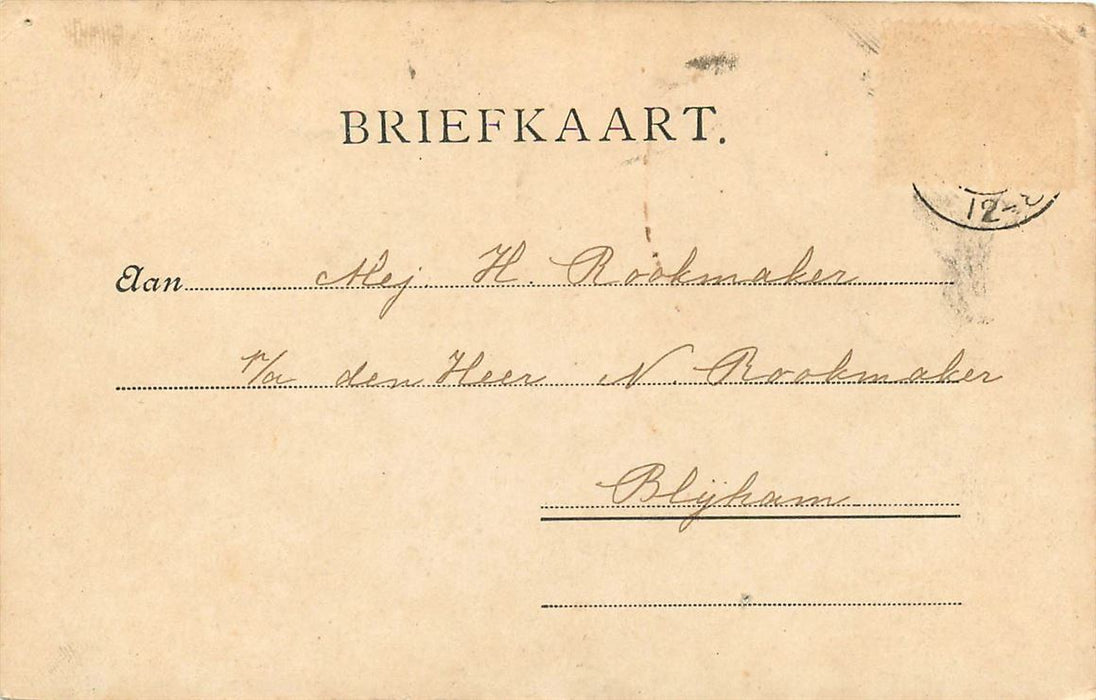 BRIEFKAART.
12-
Aan Mej. H. Rookmaker
p/a den Heer N. Rookmaker
Blijham